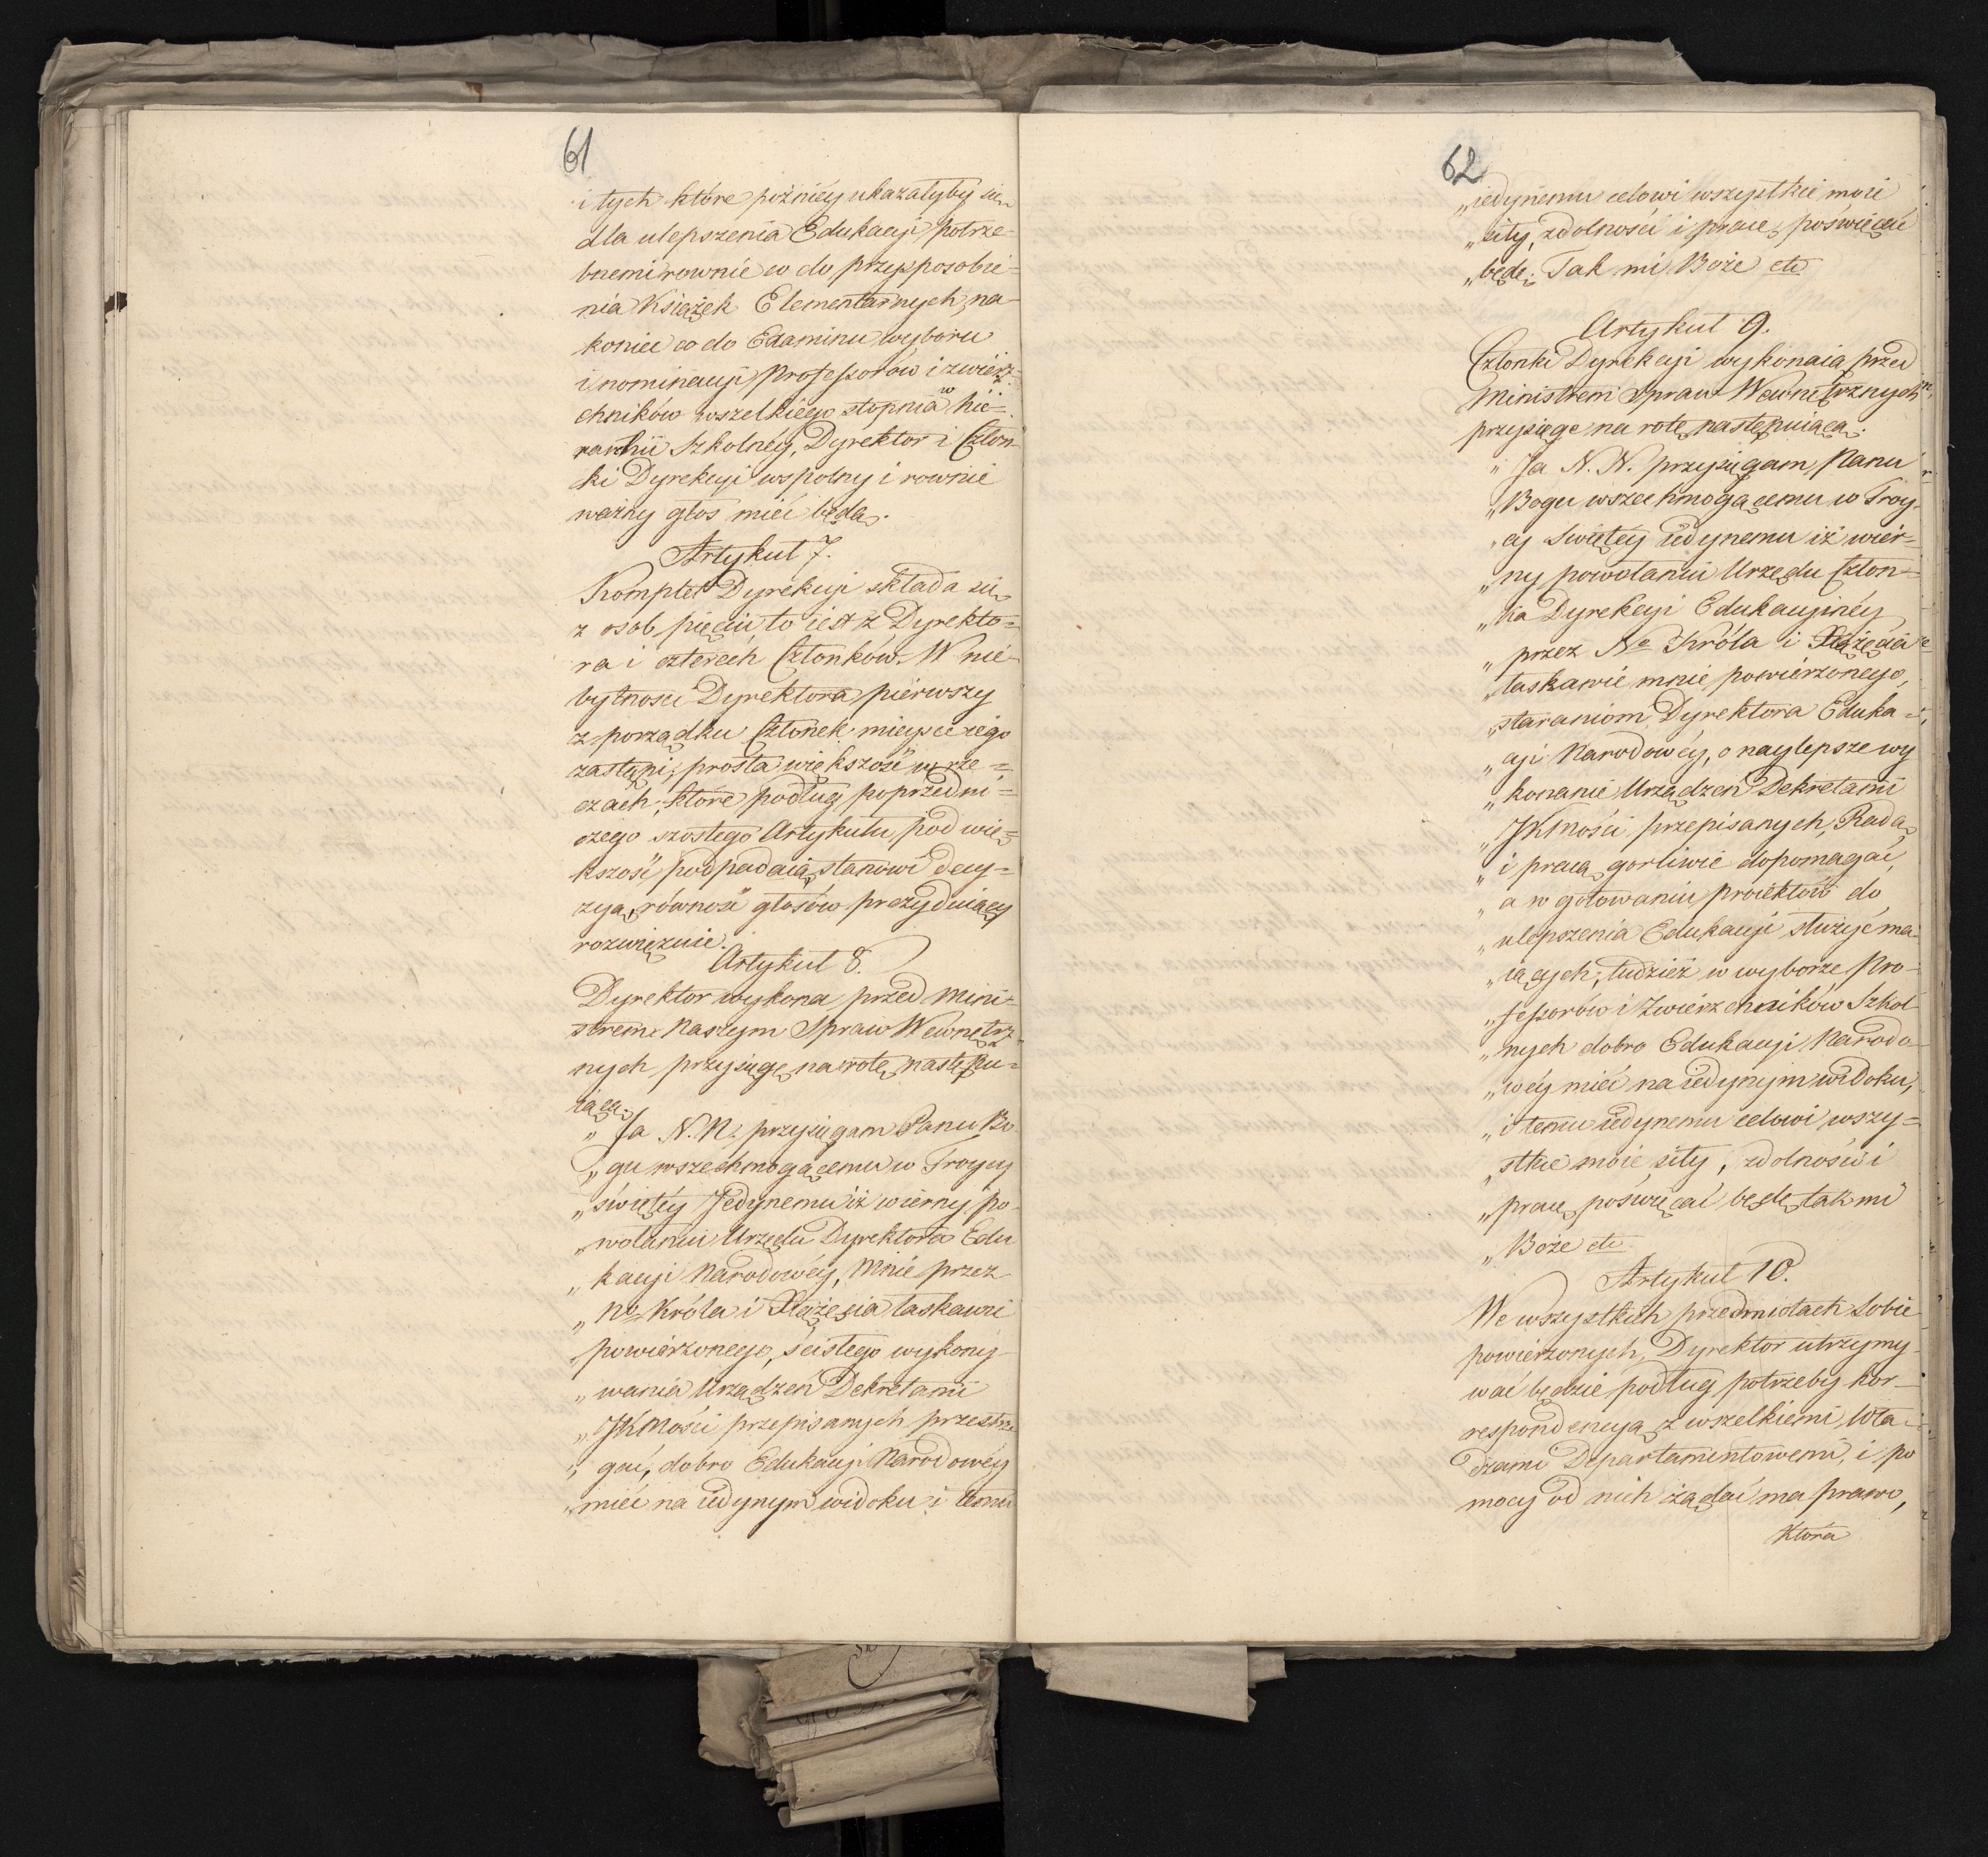 61
i tych które poźniéy ukazałyby się
dla ulepszenia Edukacyi potrze-
bnemi rownie co do przysposobie=
nia Książek Elementarnych, na-
koniec co do Examinu wyboru
i nominacyi Professorów i zwierz-
chników wszelkiego stopnia w hie=
rarchii Szkolnéy, Dyrektor i Człon-
ki Dyrekcyi wspolny i rownie
ważny głos mieć będą.
Artykuł 7.
Komplet Dyrekcyi składa się
z osób pięciu, to iest z Dyrekto=
ra i czterech Członków. W nie-
bytnosci Dyrektora pierwszy
z porządku Członek mieysce iego
zastąpi; prosta większość w rze=
czach, które podług poprzedni=
czego szostego Artykułu pod wię=
kszość podpadaią, stanowi decy=
zyą, równość głosów prezyduiący
rozwiązuie.
Artykuł 8.
Dyrektor wykona przed Mini-
strem Naszym Spraw Wewnętrz-
nych przysięgę na rotę następu=
iącą.
„ Ja N. N. przysięgam Panu Bo-
„ gu wszechmogącemu w Troycy
„ świętéy Jedynemu iż wierny po-
„ wołaniu Urzędu Dyrektora Edu
„ kacyi Narodowéy, Mnie przez
„ No Króla i Xiążęcia łaskawie
„ powierzonego, ścisłego wykony-
„ wania Urządzeń Dekretami
„ JKMości przepisanych przestrze
„ gać, dobro Edukacyi Narodowéy
„ mieć na iedynym widoku i temu
62
„ iedynemu celowi wszystkie moie
„ siły, zdolności i pracę poświęcać
„ będę. Tak mi Boże etc
Artykuł 9.
Członki Dyrekcyi wykonaią przed
Ministrem Spraw Wewnętrznych
przysięgę na rotę następuiącą.
„ Ja N. N. przysięgam Panu
„ Bogu wszechmogącemu w Troy-
„ cy Swiętéy iedynemu iż wier=
„ ny powołaniu Urzędu Człon=
„ ka Dyrekcyi Edukacyinéy
„ przez No Króla i Xiążęcia
„ łaskawie mnie powierzonego,
„ staraniom Dyrektora Eduka=
„ cyi Narodowéy, o naylepsze wy
„ konanie Urządzeń Dekretami
„ JKMości przepisanych, Radą
„ i pracą gorliwie dopomagać,
„ a w gotowaniu proiektów do
„ ulepszenia Edukacyi służyć ma-
„ iących, tudzież w wyborze Pro-
„ fessorów i Zwierzchników Szkol
„ nych dobro Edukacyi Narodo-
„ wéy mieć na iedynym widoku,
„ i temu iedynemu celowi wszy=
„ stkie moie siły, zdolności i
„ pracę poświęcać będę, tak mi
„ Boże etc
Artykuł 10.
We wszystkich przedmiotach Sobie
powierzonych, Dyrektor utrzymy-
wać będzie podług potrzeby kor-
respondencyą z wszelkiemi Wła-
dzami Departamentowemi, i po
mocy od nich żądać ma prawo,
Która